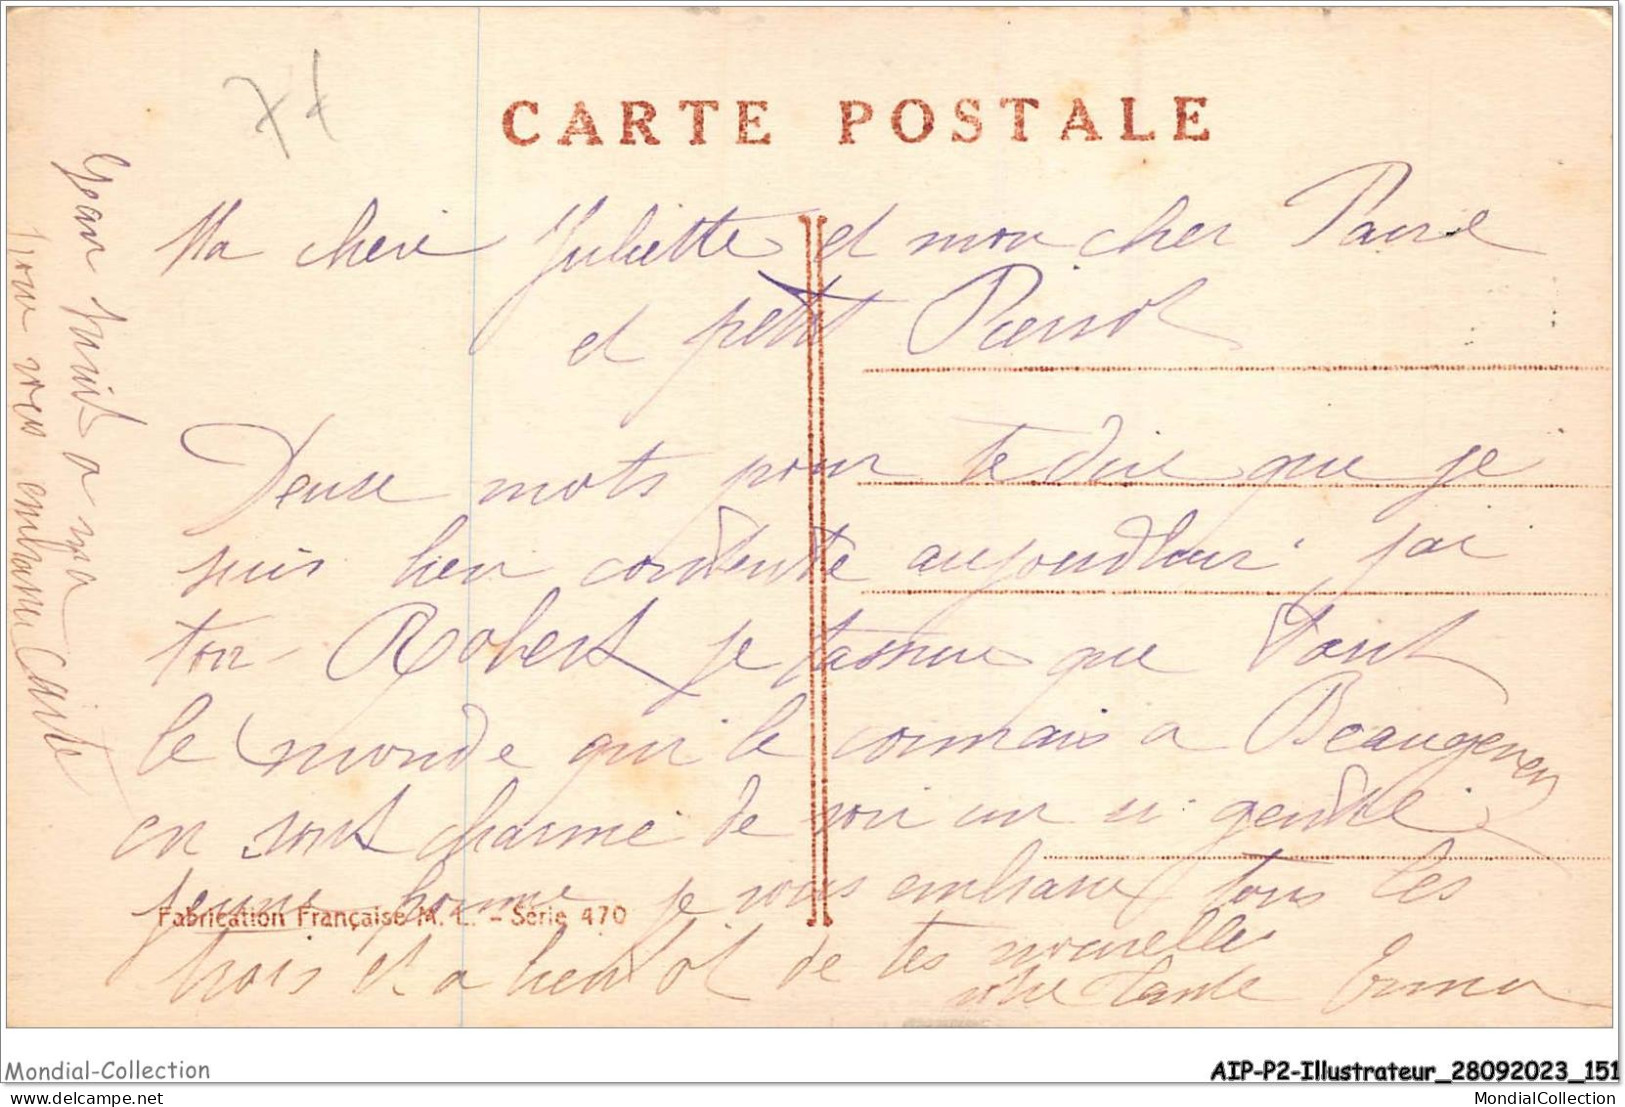 77
CARTE POSTALE
Ma cheri Juliette et mon cher Paire
et petit Pierrot
Deux mots pour te dire que je
suis bien contente aujourdhui j'ai
ton Robert je tassure que tout
le monde qui le connais a Beaugency
en sont charmé de voir un si gentil
jeune homme je vous embrasse tous les
trois et a bientot de tes nouvelles
votre tante Emma
Jean
pour vous embrasser
Fabrication Française M. L. - Série 470
Mondial-Collection
AIP-P2-Illustrateur_28092023_151
MondialCollection